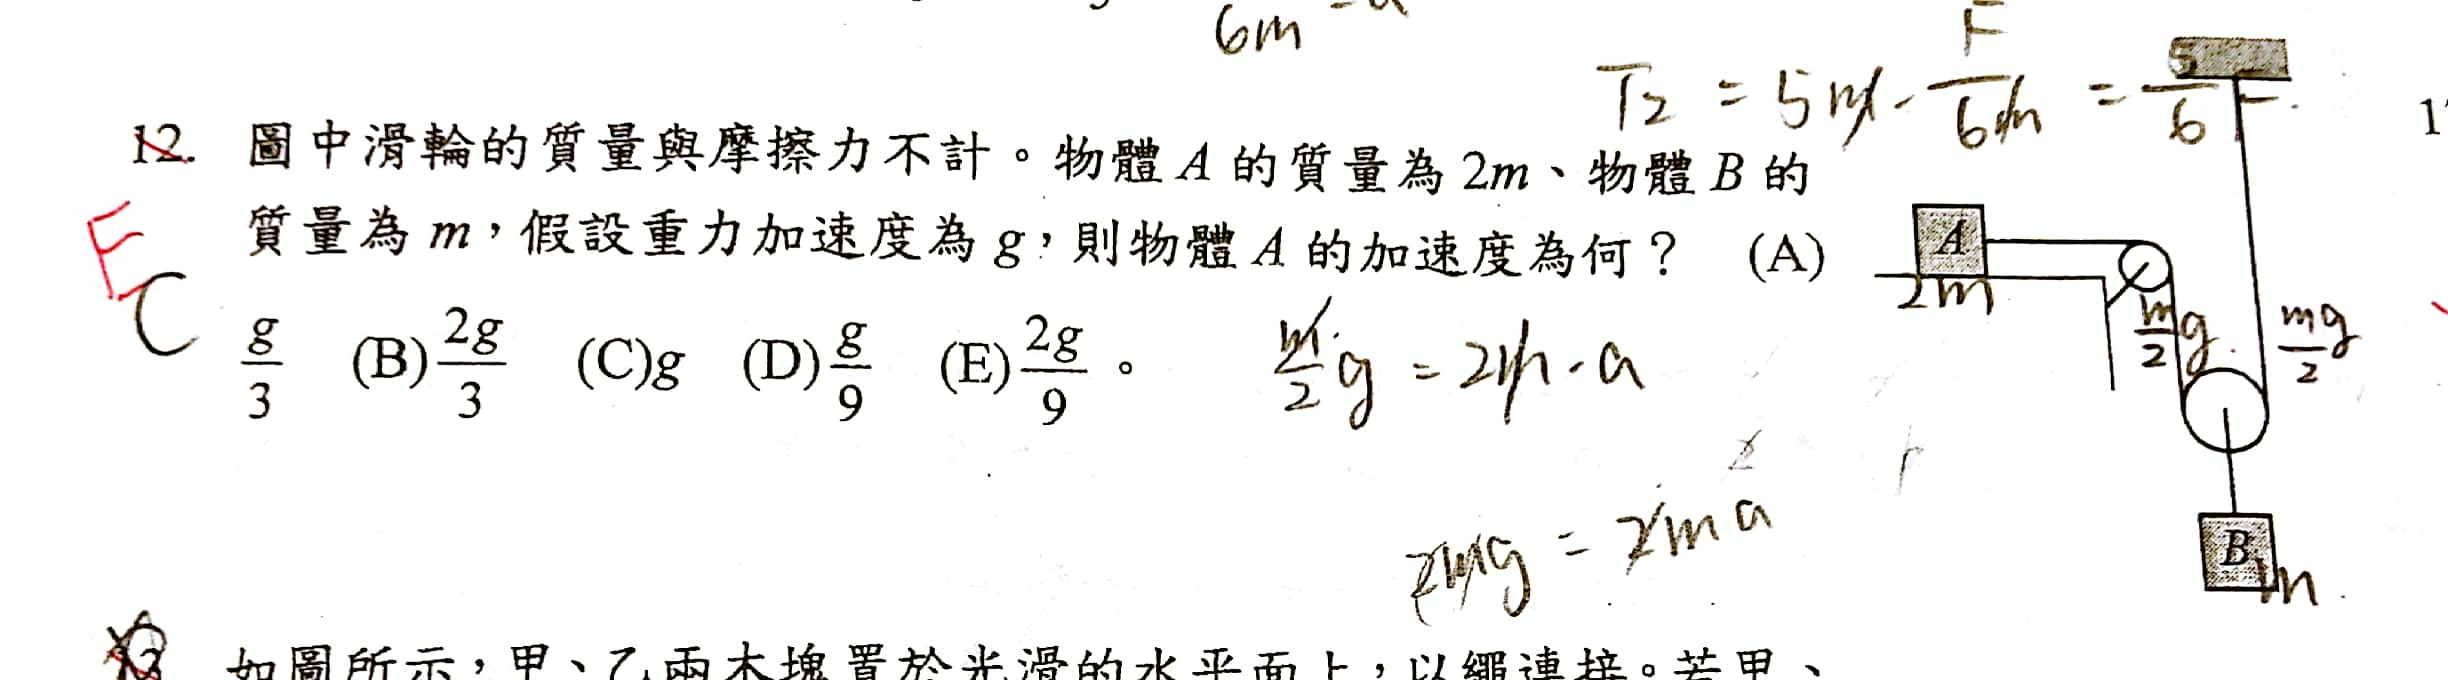 6m
T₂ = 5m · F/6m = 5/6 F.
12. 圖中滑輪的質量與摩擦力不計。物體 A 的質量為 2m、物體 B 的
質量為 m，假設重力加速度為 g，則物體 A 的加速度為何？ (A)
g/3 (B) 2g/3 (C) g (D) g/9 (E) 2g/9。
E
C
m/2 g = 2m · a
2mg = 2ma
A
2m
m/2 g
mg/2
B
m
如圖所示，甲、乙兩木塊置於光滑的水平面上，以繩連接。若甲、